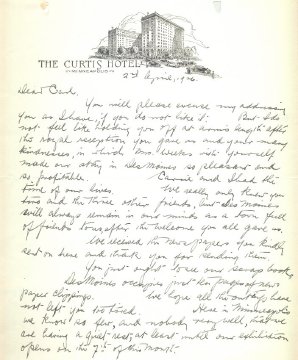 THE CURTIS HOTEL
IN MINNEAPOLIS
2nd April, 1926.
Dear Carl,
You will please excuse my addressing
you as I have, if you do not like it. But I do
not feel like holding you off at arm's length after
the royal reception you gave us and your many
kindnesses, in which Mrs. Weeks with yourself
made our stay in Des Moines so pleasant and
so profitable. Carrie and I had the
time of our lives. We really only knew you
two and the three other friends, but Des Moines
will always remain in our minds as a town full
of friends tonight after the welcome you all gave us.
We received the News papers you kindly
sent on here and thank you for sending them.
You just ought to see our scrap book,
Des Moines occupies just ten pages of news
paper clippings. We hope all the outings have
not left you too tired. Here in Minneapolis
we know so few, and nobody very well, that we
are having a quiet rest, at least until our exhibition
opens on the 7th of this month.